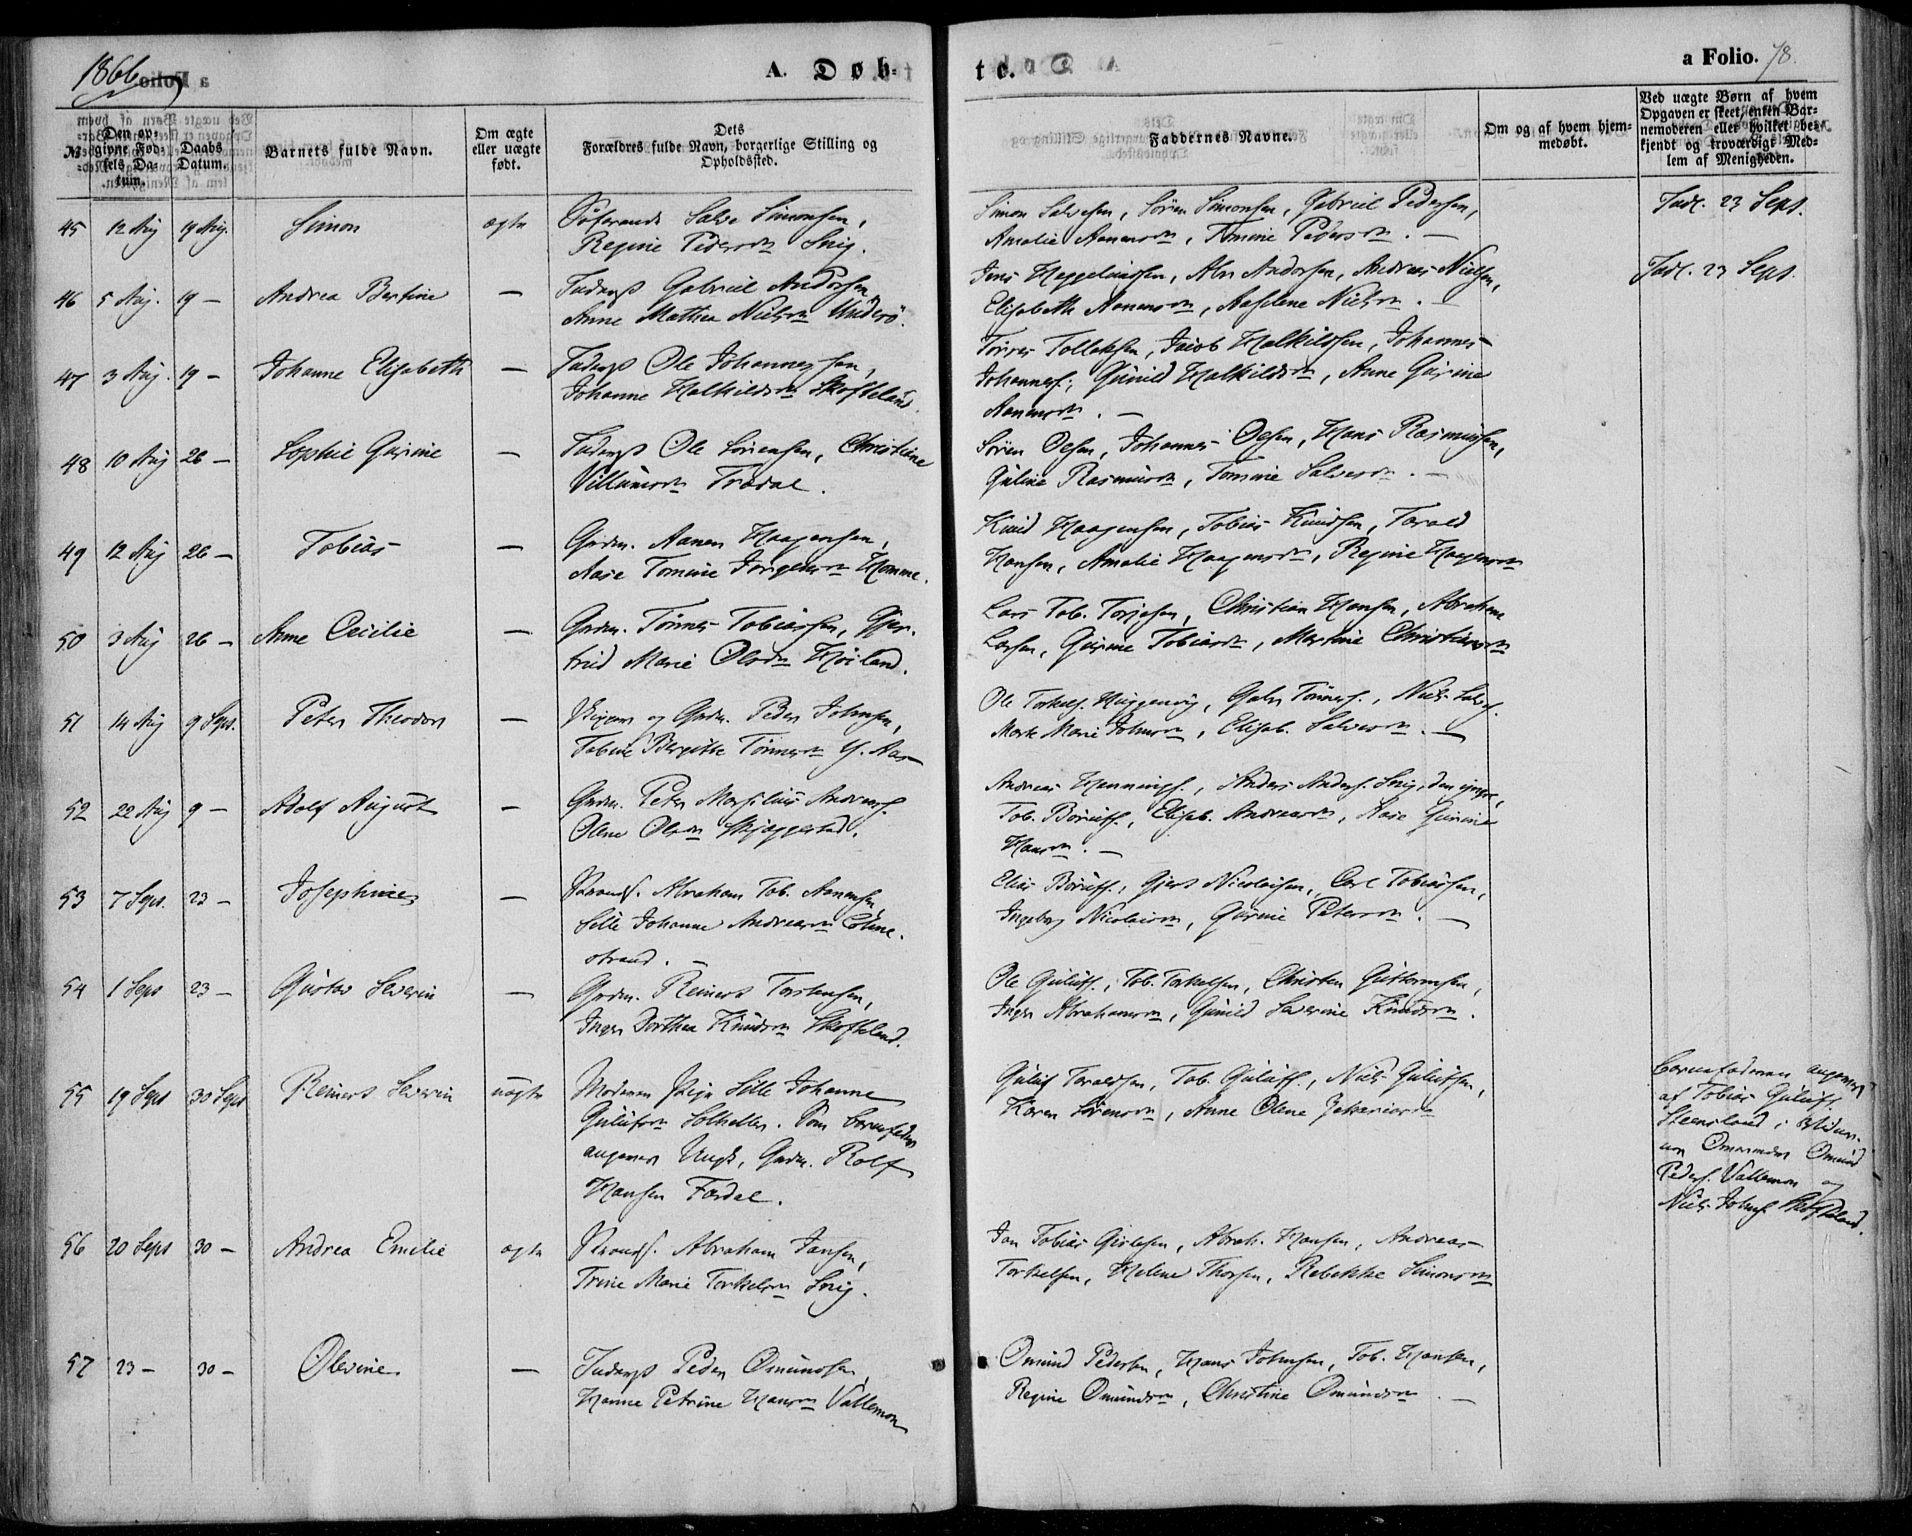 1866
A. Døb-
te.
a Folio. 78.
No.
Den opgivne Fødsels Datum.
Daabs Datum.
Barnets fulde Navn.
Om ægte eller uægte født.
Dets Forældres fulde Navn, borgerlige Stilling og Opholdssted.
Faddernes Navne.
Om og af hvem hjemmedøbt.
Ved uægte Børn af hvem Opgaven er skeet, enten Barnemoderen eller hvilket bekjendt og troværdigt Medlem af Menigheden.
45 12 Aug 19 Aug. Simon ægte Salve Simonsen,
Regine Pedersdt Snig.
Simon Salvesen, Sören Simonsen, Gabriel Pedersen,
Amalie Aanensdt, Tomine Pedersdt. —
Indl. 23 Sept.
46 5 Aug. 19 — Andrea Bertine — Inderst Gabriel Andersen
Anne Mathea Nielsdt Underö.
Jens Heggelundsen, Abr Andersen, Andreas Nielsen,
Elisabeth Aanensdt, Aaselene Nielsdt. —
Indl. 23 Sept.
47 3 Aug. 19 — Johanne Elisabeth — Inderst Ole Johannessen,
Johanne Halkildsdt Skofteland.
Tørres Tollaksen, Jacob Halkildsen, Johannes
Johannes., Gunild Halkildsdt, Anne Gurine
Aanensdt. —
48 10 Aug 26 — Sophie Gurine — Inderst Ole Sörensen, Christine
Villumsdt Trædal.
Sören Olsen, Johannes Olsen, Hans Rasmussen,
Guline Rasmusdt, Tomine Salvesdt. —
49 12 Aug 26 — Tobias — Grdm. Aanen Haagensen,
Aase Tomine Jörgensdt Homme.
Knud Haagensen, Tobias Knudsen, Torald
Hansen, Amalie Haagensdt, Regine Haagensdt
50 3 Aug 26 — Anne Cecilie — Grdm. Tönnes Tobiassen, Gjer-
trud Marie Olsdt Höiland.
Lars Tob. Torjesen, Christian Hansen, Abraham
Larsen, Gurine Tobiasdt, Martine Christiansdt
51 14 Aug 9 Sept. Peter Theodor — Skipper og Grdm. Peder Johnsen,
Tobine Bergitte Tönnesdt Y. Aas
Ole Torkels. , Gabr Tönness., Niels Salves.
Marte Marie Johnsdt, Elisab. Salvesdt. —
52 22 Aug 9 — Adolf August — Grdm. Peter Marsilius Andreass.
Olene Olsdt Skjæggestad.
Andreas Hennings., Anders Anders. Snig, den yngre,
Tob. Börufs., Elisab. Andreasdt, Aase Gurine
Hansdt. —
53 7 Sept. 23 — Josephine — Strands. Abraham Tob. Aanensen,
Sille Johanne Andreasdt Lohne-
strand. —
Elias Börufs., Gjert Nicolaisen, Carl Tobiassen,
Ingeborg Nicolaisdt, Gurine Petersdt. —
54 1 Sept 23 — Gustav Severin — Grdm. Reinert Torstensen,
Inger Dorthea Knudsdt Skofteland.
Ole Gulufs., Tob. Torkelsen, Christen Guttormsen,
Inger Abrahamsdt, Gunild Severine Knudsdt.
55 19 Sept 30 Sept Reinert Severin uægte Moderen Pige Sille Johanne
Gulufsdt Solhellen. Som barnefader
angives Ungk, Grdm. Rolf
Hansen Fardal.
Guluf Toraldsen, Tob. Gulufs., Niels Gulufsen,
Karen Sörensdt, Anne Olene Zakariasdt
Barnefaderen angivet
af Tobias Gulufs.
Steensland i
Omund
Peders. Vallemon og
Niels Johns. Skofteland.
56 20 Sept 30 — Andrea Emilie ægte Strands. Abraham Jansen,
Trine Marie Torkelsdt Snig.
Jan Tobias Gislesen, Abrah. Hansen, Andreas
Torkelsen, Helene Thorsen, Rebekke Simonsdt
57 23 — 30 — Olevine — Inderst Peder Omundsen
Hanne Petrine Hansdt Vallemon
Omund Pedersen, Hans Johnsen, Tob. Hansen,
Regine Omundsdt, Christine Omundsdt. —